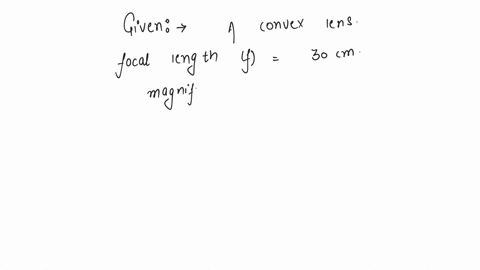 Given:→ A convex lens.
focal length (f) = 30 cm.
magnif.